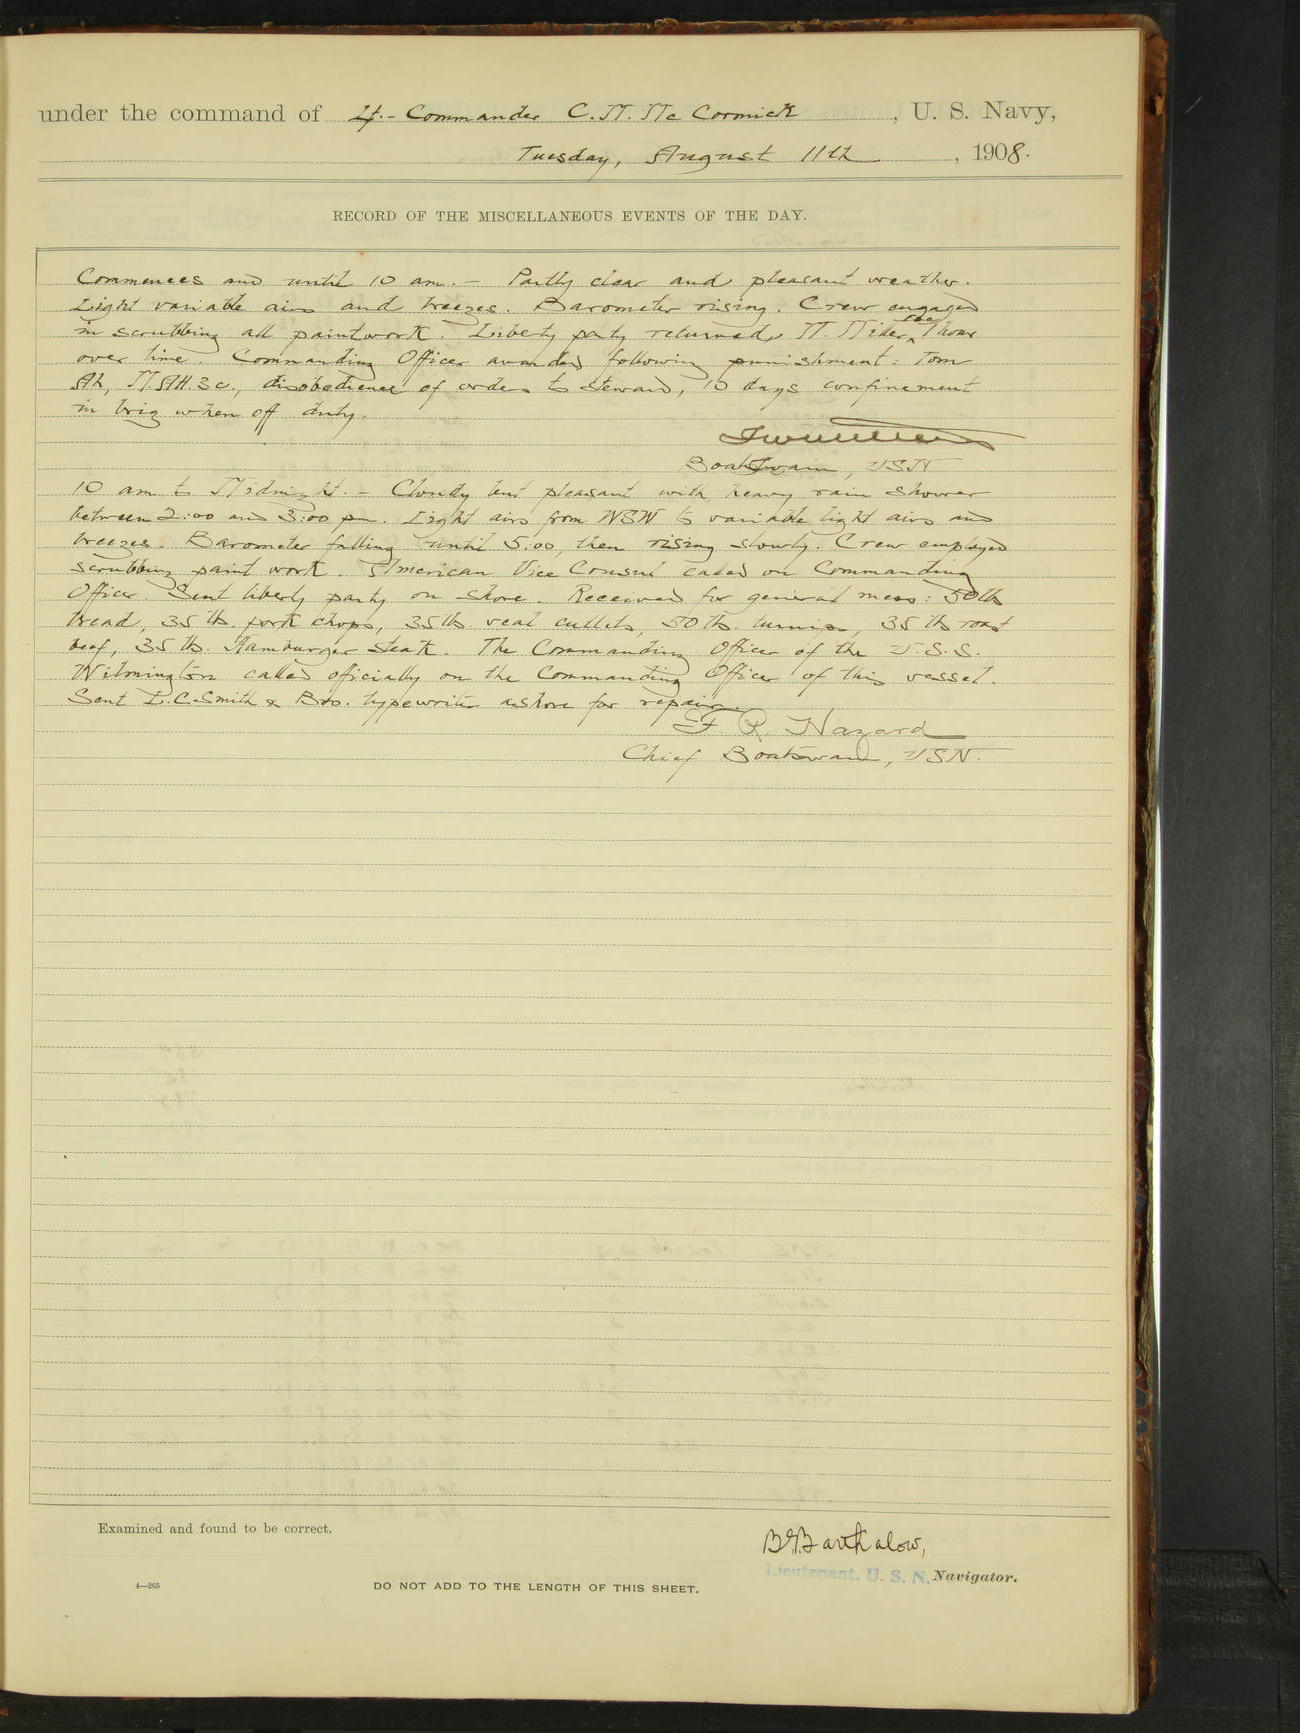 under the command of Lt.- Commander C. M. Mc Cormick , U. S. Navy,
Tuesday, August 11th , 1908.
RECORD OF THE MISCELLANEOUS EVENTS OF THE DAY.
Commences and until 10 am. – Partly clear and pleasant weather.
Light variable airs and breezes. Barometer rising. Crew engaged
in scrubbing all paintwork. Liberty party returned, M. 1 hour
over time. Commanding Officer awarded following punishment: Tom
Ah, M.Att.3c., disobedience of orders to steward, 10 days confinement
in brig when off duty.
Boatswain, USN
10 am to Midnight. – Cloudy but pleasant with heavy rain shower
between 2:00 and 3:00 pm. Light airs from WSW to variable light airs and
breezes. Barometer falling until 5:00, then rising slowly. Crew employed
scrubbing paint work. American Vice Consul called on Commanding
Officer. Sent liberty party on shore. Received for general mess: 50 lb
bread, 35 lb. pork chops, 35 lb veal cutlets, 50 lb. turnips, 35 lb roast
beef, 35 lb. Hamburger steak. The Commanding Officer of the U.S.S.
Wilmington called officially on the Commanding Officer of this vessel.
Sent L.C. Smith & Bro. typewriter ashore for repairs.
F. R. Hazard
Chief Boatswain, USN.
Examined and found to be correct.
Barthalow,
Lieutenant, U. S. N. Navigator.
4—265
DO NOT ADD TO THE LENGTH OF THIS SHEET.